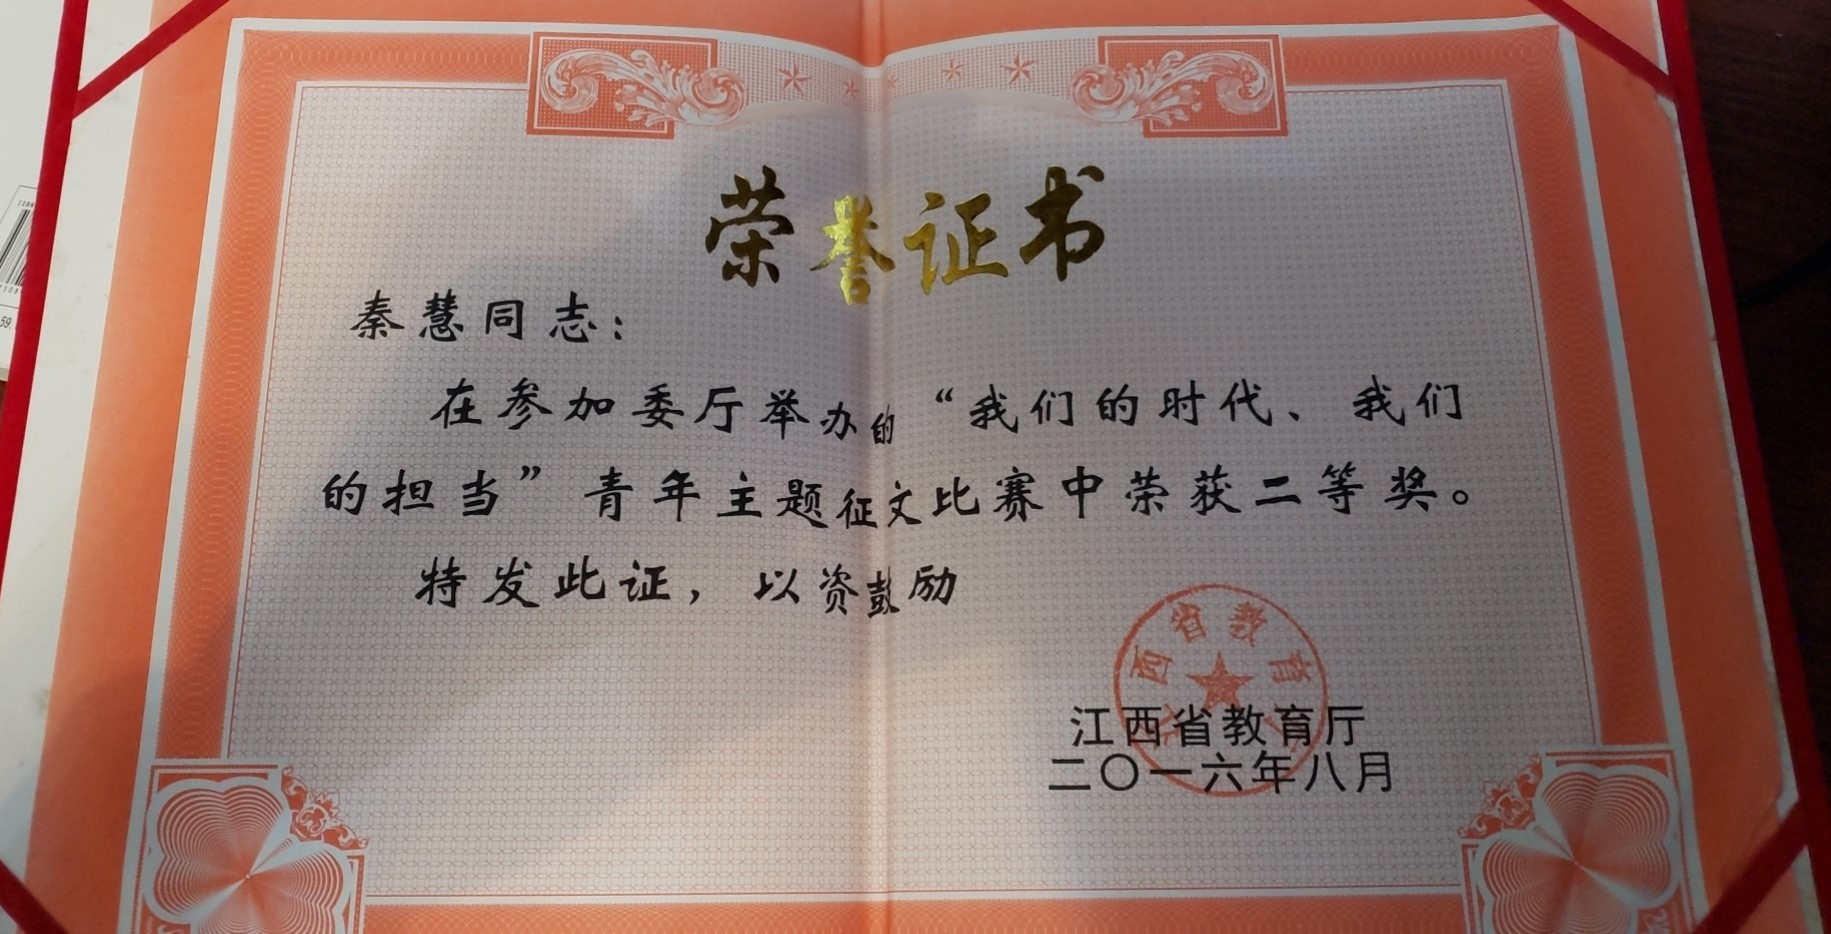 荣誉证书
秦慧同志：
在参加委厅举办的“我们的时代、我们
的担当”青年主题征文比赛中荣获二等奖。
特发此证，以资鼓励
西省教育
江西省教育厅
二〇一六年八月